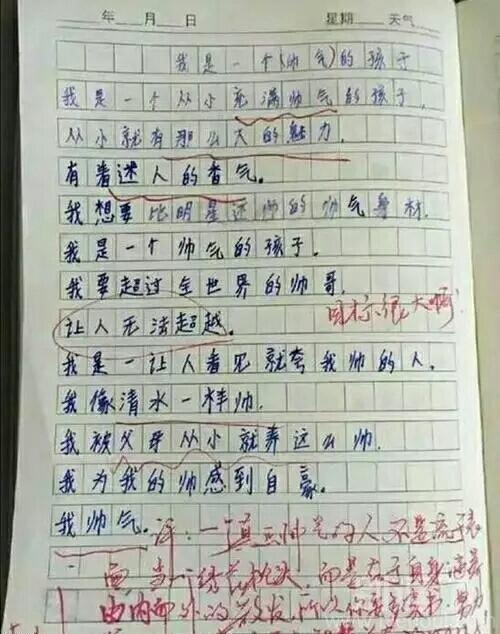 年 月 日 星期 天气
我是一个(帅气)的孩子
我是一个从小充满帅气的孩子,
从小就有那么大的魅力.
有着迷人的香气。
我想要比明星还帅的帅气身材.
我是一个帅气的孩子.
我要超过全世界的帅哥.
目标很大啊!
让人无法超越.
我是一让人看见就夸我帅的人.
我像清水一样帅.
我被父母从小就养这么帅.
我为我的帅感到自豪。
我帅气。
评:一个真正帅气的人不是流于表
面,当一绣花枕头,而是在于自身
由内而外的散发,所以你要多读书,努力